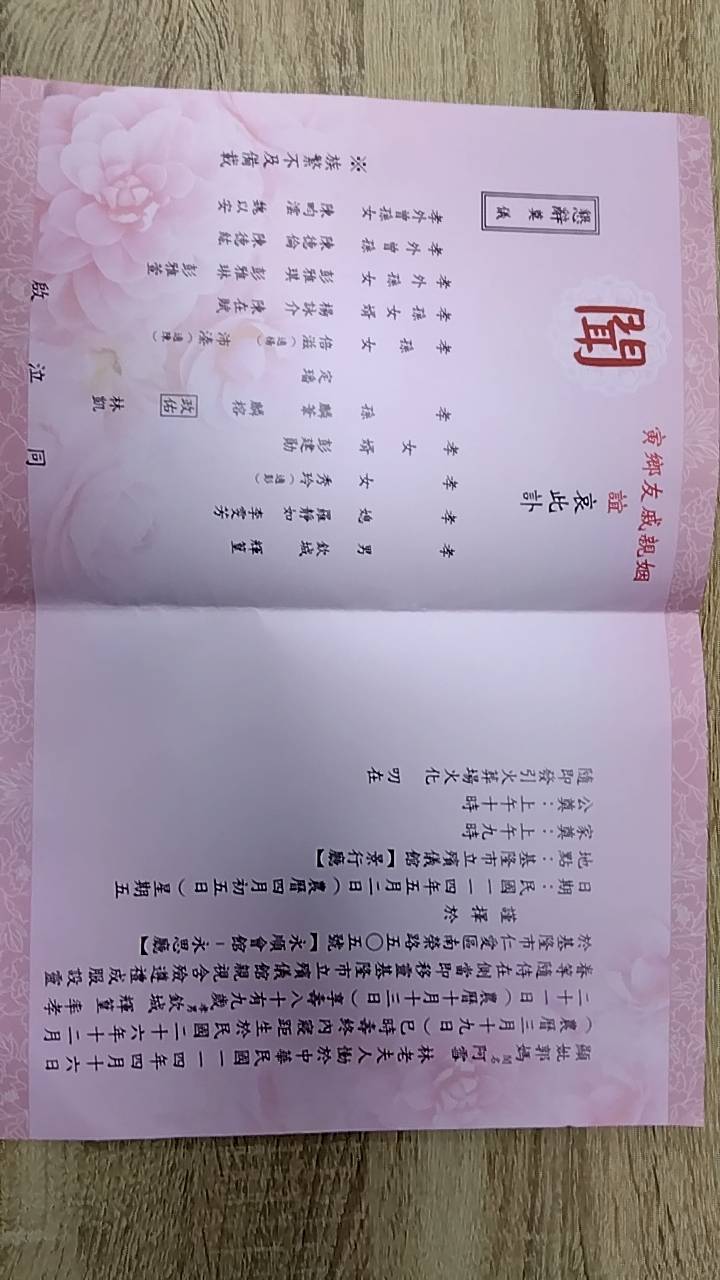 顯妣郭媽閨名阿雪 林老夫人慟於中華民國一一四年四月十六日
（農曆三月十九日）巳時壽終內寢距生於民國二十六年十二月
二十一日（農曆十月十三日）享壽八十有九歲孝男欽城 輝篁率孝
眷等隨侍在側當即移靈基隆市立殯儀館親視含殮遵禮成服設靈
於基隆市仁愛區南榮路五〇五號【永順會館－永思廳】
謹擇於
日期：民國一一四年五月二日（農曆四月初五日）星期五
地點：基隆市立殯儀館【景行廳】
家奠：上午九時
公奠：上午十時
隨即發引火葬場火化 叨在
姻親戚友鄉寅
誼
哀此訃
聞
懇辭奠儀
孝男 欽城 輝篁
孝媳 羅靜如 李雯芳
孝女 秀玲（適彭）
孝女婿 彭建勛
孝孫 定瑞 麟峯 麟榕 政佑 林凱
孝孫女 倍滋（適楊） 沛溱（適陳）
孝孫女婿 楊詠介 陳在賦
孝外孫女 彭雅琪 彭雅琳 彭雅萱
孝外曾孫 陳德倫 陳德紘
孝外曾孫女 陳畇澐 魏以安
※族繁不及備載
同泣啟